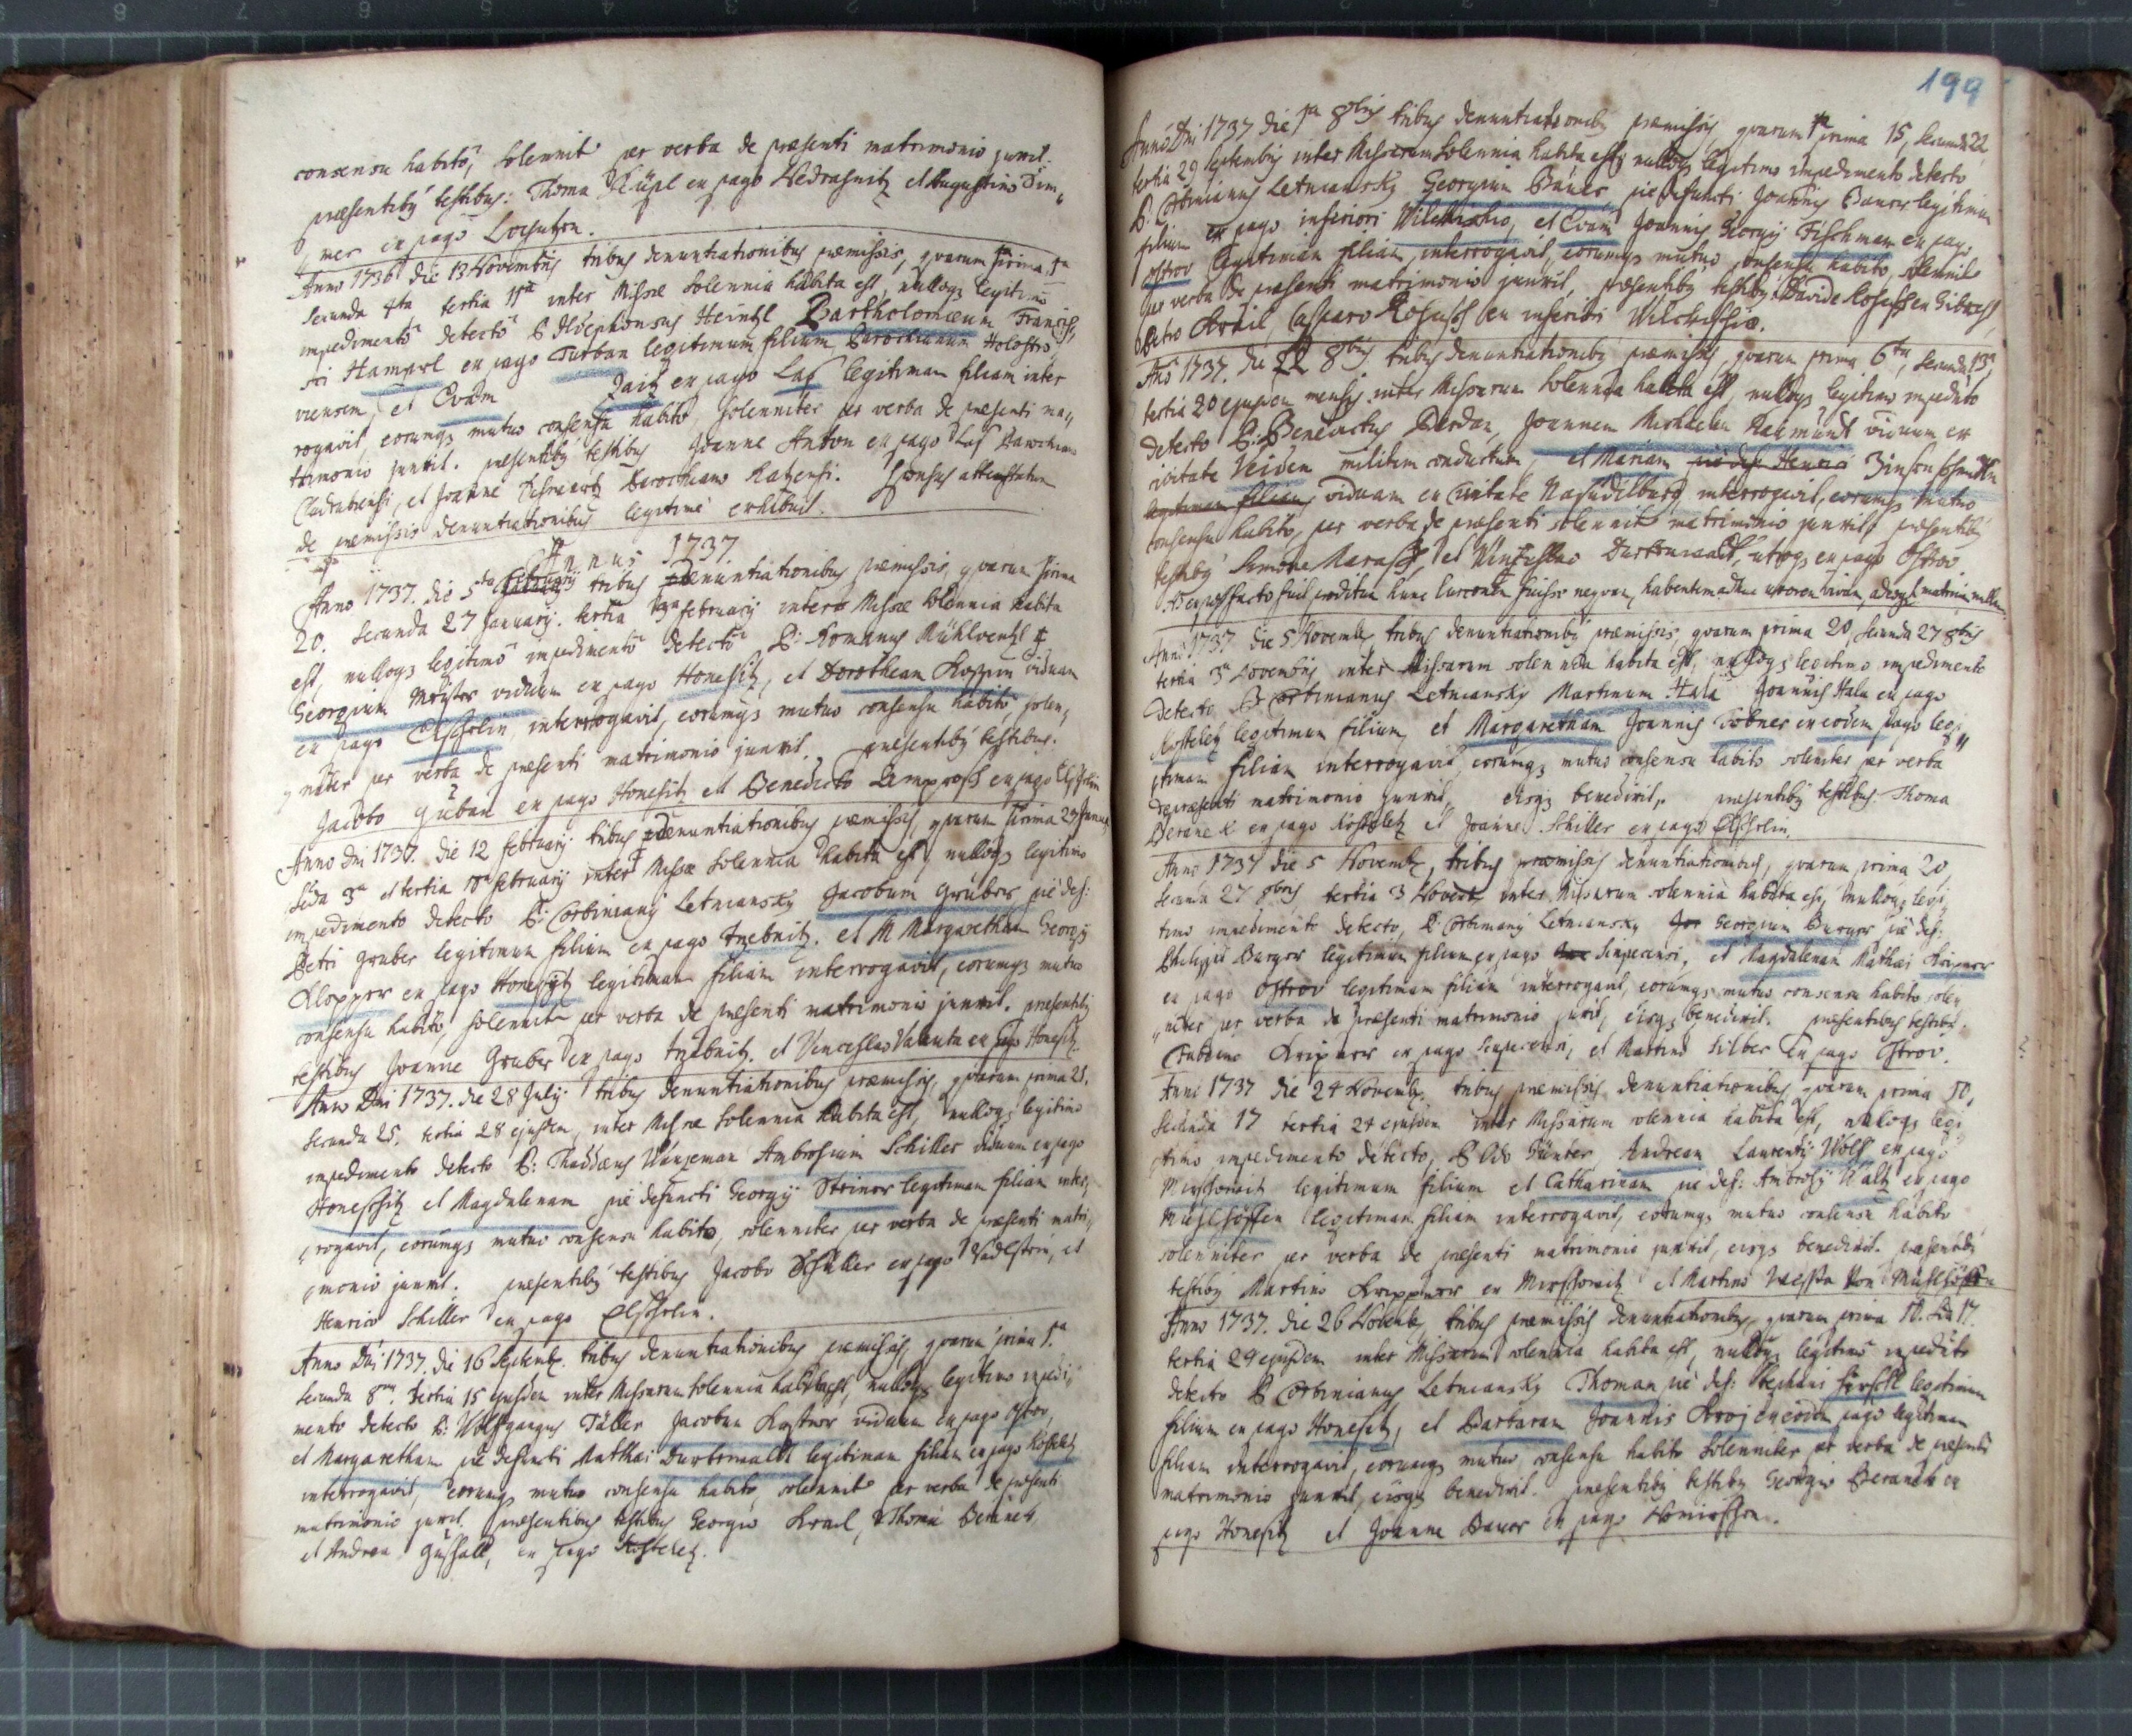 consensu habito, solennit per verba de præsenti matrimonio junxit.
præsentibꝫ testibus: Thoma en pago Wedrasnitz et Augustino Dim„
mer ex pago Losutzen.
Anno 1736 die 13 Novembris tribus denuntiationibus præmissis, quarum prima 1ma
secunda 4ta tertia 11ma inter Missæ solennia habita est, nulloqꝫ legitimo
impedimento detecto P. Ildephonsus Heintzl Bartholomæum Francis,
sci Hamperl ex pago Turban legitimum filium Parochianum Holostro
viensem, et Evam Zaitz ex pago Las legitimam filiam inter
rogavit, eorumqꝫ mutuo consensu habito, solenniter per verba de præsenti ma„
trimonio junxit. præsentibꝫ testibus Joanne Anton ex pago Las Parochiano
Cladrubensi, et Joanne Parochiano Razensi. Sponsus attestatum
de præmissis denuntiationibus legitime exhibuit.
Annus 1737.
Anno 1737. die 5ta February tribus denuntiationibus præmissis, quarum prima
20. secunda 27 January. tertia 3ia February intera Missæ solennia habita
est, nulloqꝫ legitimo impedimento detecto P. Romanus Mühlwentzl
Georgium Meister viduum ex pago Honesitz, et Dorotheam Koppin viduam
ex pago Elscholin, interrogavit, eorumqꝫ mutuo consensu habito, solen„
niter per verba de præsenti matrimonio junxit. præsentibꝫ testibus.
Jacobo Guban ex pago Honesitz et Benedicto Lamprecht ex pago Elscholin
Anno Dni 1737. die 12 February tribus denuntiationibus præmissis, quarum prima 27 January
scda 3a et tertia 10ma February inter Missæ solennia habita est, nulloqꝫ legitimo
impedimento detecto P: Corbinianꝫ Letniansky Jacobum Gruber pie def:
Petri Gruber legitimum filium ex pago Trzebnitz. et M Margaretham Georgy
Klopper ex pago Honesitz legitimam filiam interrogavit, eorumqꝫ mutuo
consensu habito, solennit per verba de præsenti matrimonio junxit. præsentibꝫ
testibus Joanne Gruber ex pago Trzebnitz. et Venceslao Valenta ex pago Honesitz.
Anno Dni 1737. die 28 July tribus denuntiationibus præmissis, quarum prima 21.
secunda 25. tertia 28 ejusdem, inter Missæ solennia habita est, nulloqꝫ legitimo
impedimento detecto P: Thaddæus Wanzeman Ambrosium Schiller viduum ex pago
Honessitz et Magdalenam pie defuncti Georgy Steiner legitimam filiam inter„
rogavit, eorumqꝫ mutuo consensu habito, solenniter per verba de præsenti matri„
monio junxit. præsentibꝫ testibus Jacobo Schiller ex pago et
Henrico Schiller ex pago Elscholin.
Anno Dni 1737. die 16 Septemb. tribus denuntiationibus præmissis, quarum prima 1a
secunda 8va tertia 15 ejusdem inter Missarum solennia habita est, nulloqꝫ legitimo impedi„
mento detecto P: Wolfgangus Täller Jacobum Kastner viduum ex pago Ostrov,
et Margaretham pie defuncti Mathæi Durbenwaldt legitimam filiam ex pago Kosteletz
interrogavit, eorumqꝫ mutuo consensu habito, solennit per verba de præsenti
matrimonio junxit præsentibus testibus Georgio Krail, Thoma Beranek
et Andrea Guschall, ex pago Kosteletz.
199
Anno Dni 1737 die 1a 8bris tribus denuntiationibꝫ præmissis, quarum prima 15, secunda 22
tertia 29 Septembris inter Missarum solennia habita est, nulloqꝫ legitimo impedimento detecto
P. Corbinianus Letniansky Georgium Bauer, pie defuncti Joannis Bauer legitimum
filium ex pago inferiori Wilckischio, et Evam Joannis Georgij Fischman ex pago
Ostrov legitimam filiam, interrogavit, eorumqꝫ mutuo consensu habito, solennit
per verba de præsenti matrimonio junxit, præsentibꝫ testibꝫ Davide
Petro Krail, Casparo ex inferiori Wilckischio.
Ano 1737. die 22 8bris tribus denuntiationibꝫ præmissis, quarum prima 6ta, secunda 13
tertia 20 ejusdem mensis inter Missarum solennia habita est, nulloqꝫ legitimo impedito
detecto P: Benedictus Bardan, Joannem Michaelem Raymund viduum ex
civitate Veiden militem conductum, et Mariam pie def: Henrici Zinser
legitimam filiam viduam ex civitate interrogavit, eorumqꝫ mutuo
consensu habito, per verba de præsenti solennit matrimonio junxit, præsentibꝫ
testibꝫ Simone et Winzeslao Durbenwaldt, utroqꝫ ex pago Ostrov.
habentem adhuc uxorem vivam, adeoqꝫ matrim: nullum.
Anno 1737 die 5 Novemb. tribus denuntiationibꝫ præmissis, quarum prima 20, secunda 27 8bris
tertia 3a Novembris inter Missarum solennia habita est, nulloqꝫ legitimo impedimento
detecto P Corbinianus Letniansky Martinum Hala Joannis Hala ex pago
Kosteletz legitimum filium, et Margaretham Joannis Tobner ex eodem pago legi„
timam filiam interrogavit, eorumqꝫ mutuo consensu habito solenniter per verba
de præsenti matrimonio junxit, eisqꝫ benedixit, præsentibꝫ testibus Thoma
Beranek ex pago Kosteletz et Joanne Schiller ex pago Elscholin.
Anno 1737 die 5 Novemb, tribus præmissis denuntiationibus, quarum prima 20,
secunda 27 8bris tertia 3 Novemb, inter Missarum solennia habita est, nulloqꝫ legi
timo impedimento detecto, P. Corbinianꝫ Letniansky Georgium Burger pie def:
Philippi Burger legitimum filium ex pago et Magdalenam Mathæi Kripner
ex pago Ostrov legitimam filiam interrogavit, eorumqꝫ mutuo consensu habito solen„
niter per verba de præsenti matrimonio junxit, eisqꝫ benedixit. præsentibus testibꝫ.
Kripner ex pago et Martino Silber ex pago Ostrov.
Anno 1737 die 24 Novemb. tribus præmissis denuntiationibus quarum prima 10,
secunda 17 tertia 24 ejusdem inter Missarum solennia habita est, nulloqꝫ legi
timo impedimento detecto, P Udo Günter Andream Laurentij Wolf ex pago
Mirschowitz legitimum filium et Catharinam pie def: Ambrosij Waltz ex pago
Mühlhöffen legitimam filiam interrogavit, eorumqꝫ mutuo consensu habito
solenniter per verba de præsenti matrimonio junxit, eisqꝫ benedixit. præsentibꝫ
testibꝫ Martino Krippner ex Mirschowitz et Martino von Mühlhöffen
Anno 1737. die 26 Novemb, tribus præmissis denuntiationibꝫ, quarum prima 10. scda 17.
tertia 24 ejusdem inter Missarum solennia habita est, nulloqꝫ legitimo impedito
detecto P Corbinianus Letniansky Thomam pie def: Stephani Hirschl legitimum
filium ex pago Honesitz, et Barbaram Joannis Kroj ex eodem pago legitimam
filiam interrogavit, eorumqꝫ mutuo consensu habito solenniter per verba de præsenti
matrimonio junxit, eisqꝫ benedixit. præsentibꝫ testibꝫ Georgio Beranek ex
pago Honesitz et Joanne Bauer ex pago